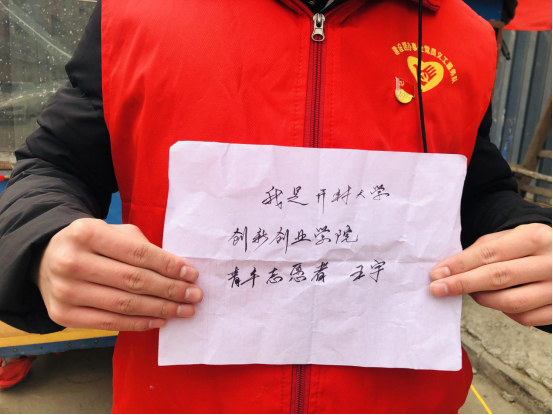 我是开封大学
创新创业学院
青年志愿者 王宇